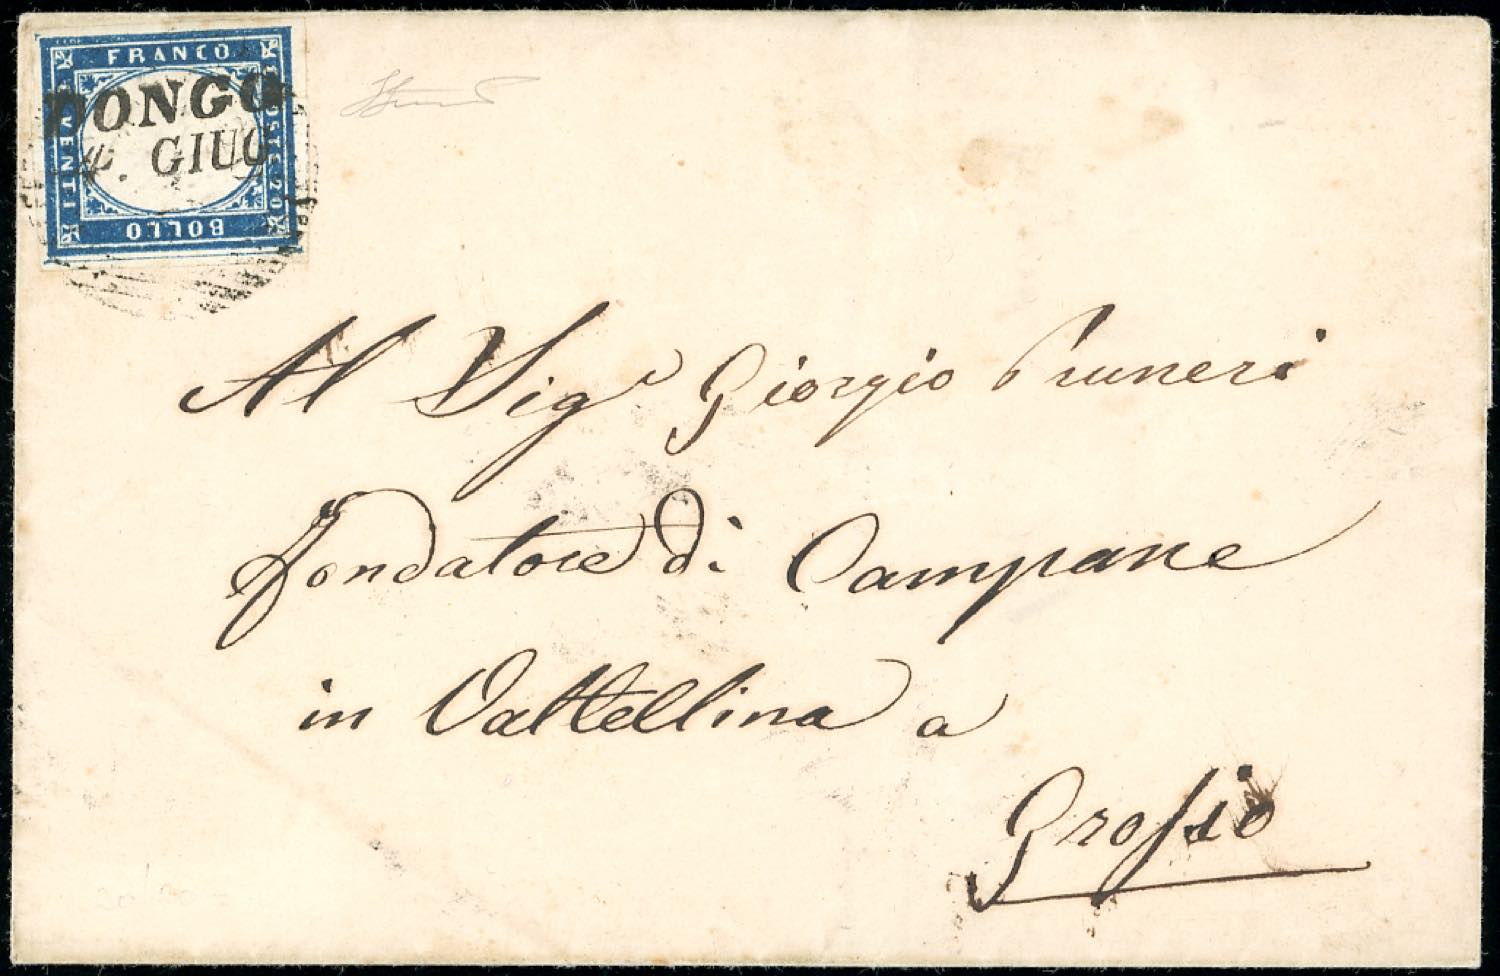 FRANCO
POSTE 20
BOLLO
CENTI
DONGO
GIUG
Al Sigr Giorgio Pruneri
Fondatore di Campane
in Valtellina a
Grossio